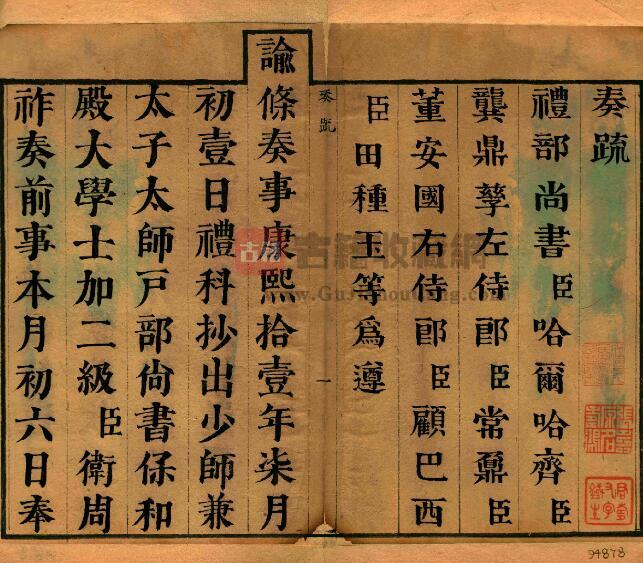 奏疏
禮部尚書臣哈爾哈齊臣
龔鼎孳左侍郎臣常鼐臣
董安國右侍郎臣顧巴西
臣田種玉等爲遵
奏疏
一
諭條奏事康熙拾壹年柒月
初壹日禮科抄出少師兼
太子太師戸部尙書保和
殿大學士加二級臣衛周
祚奏前事本月初六日奉
古籍收藏網
94878